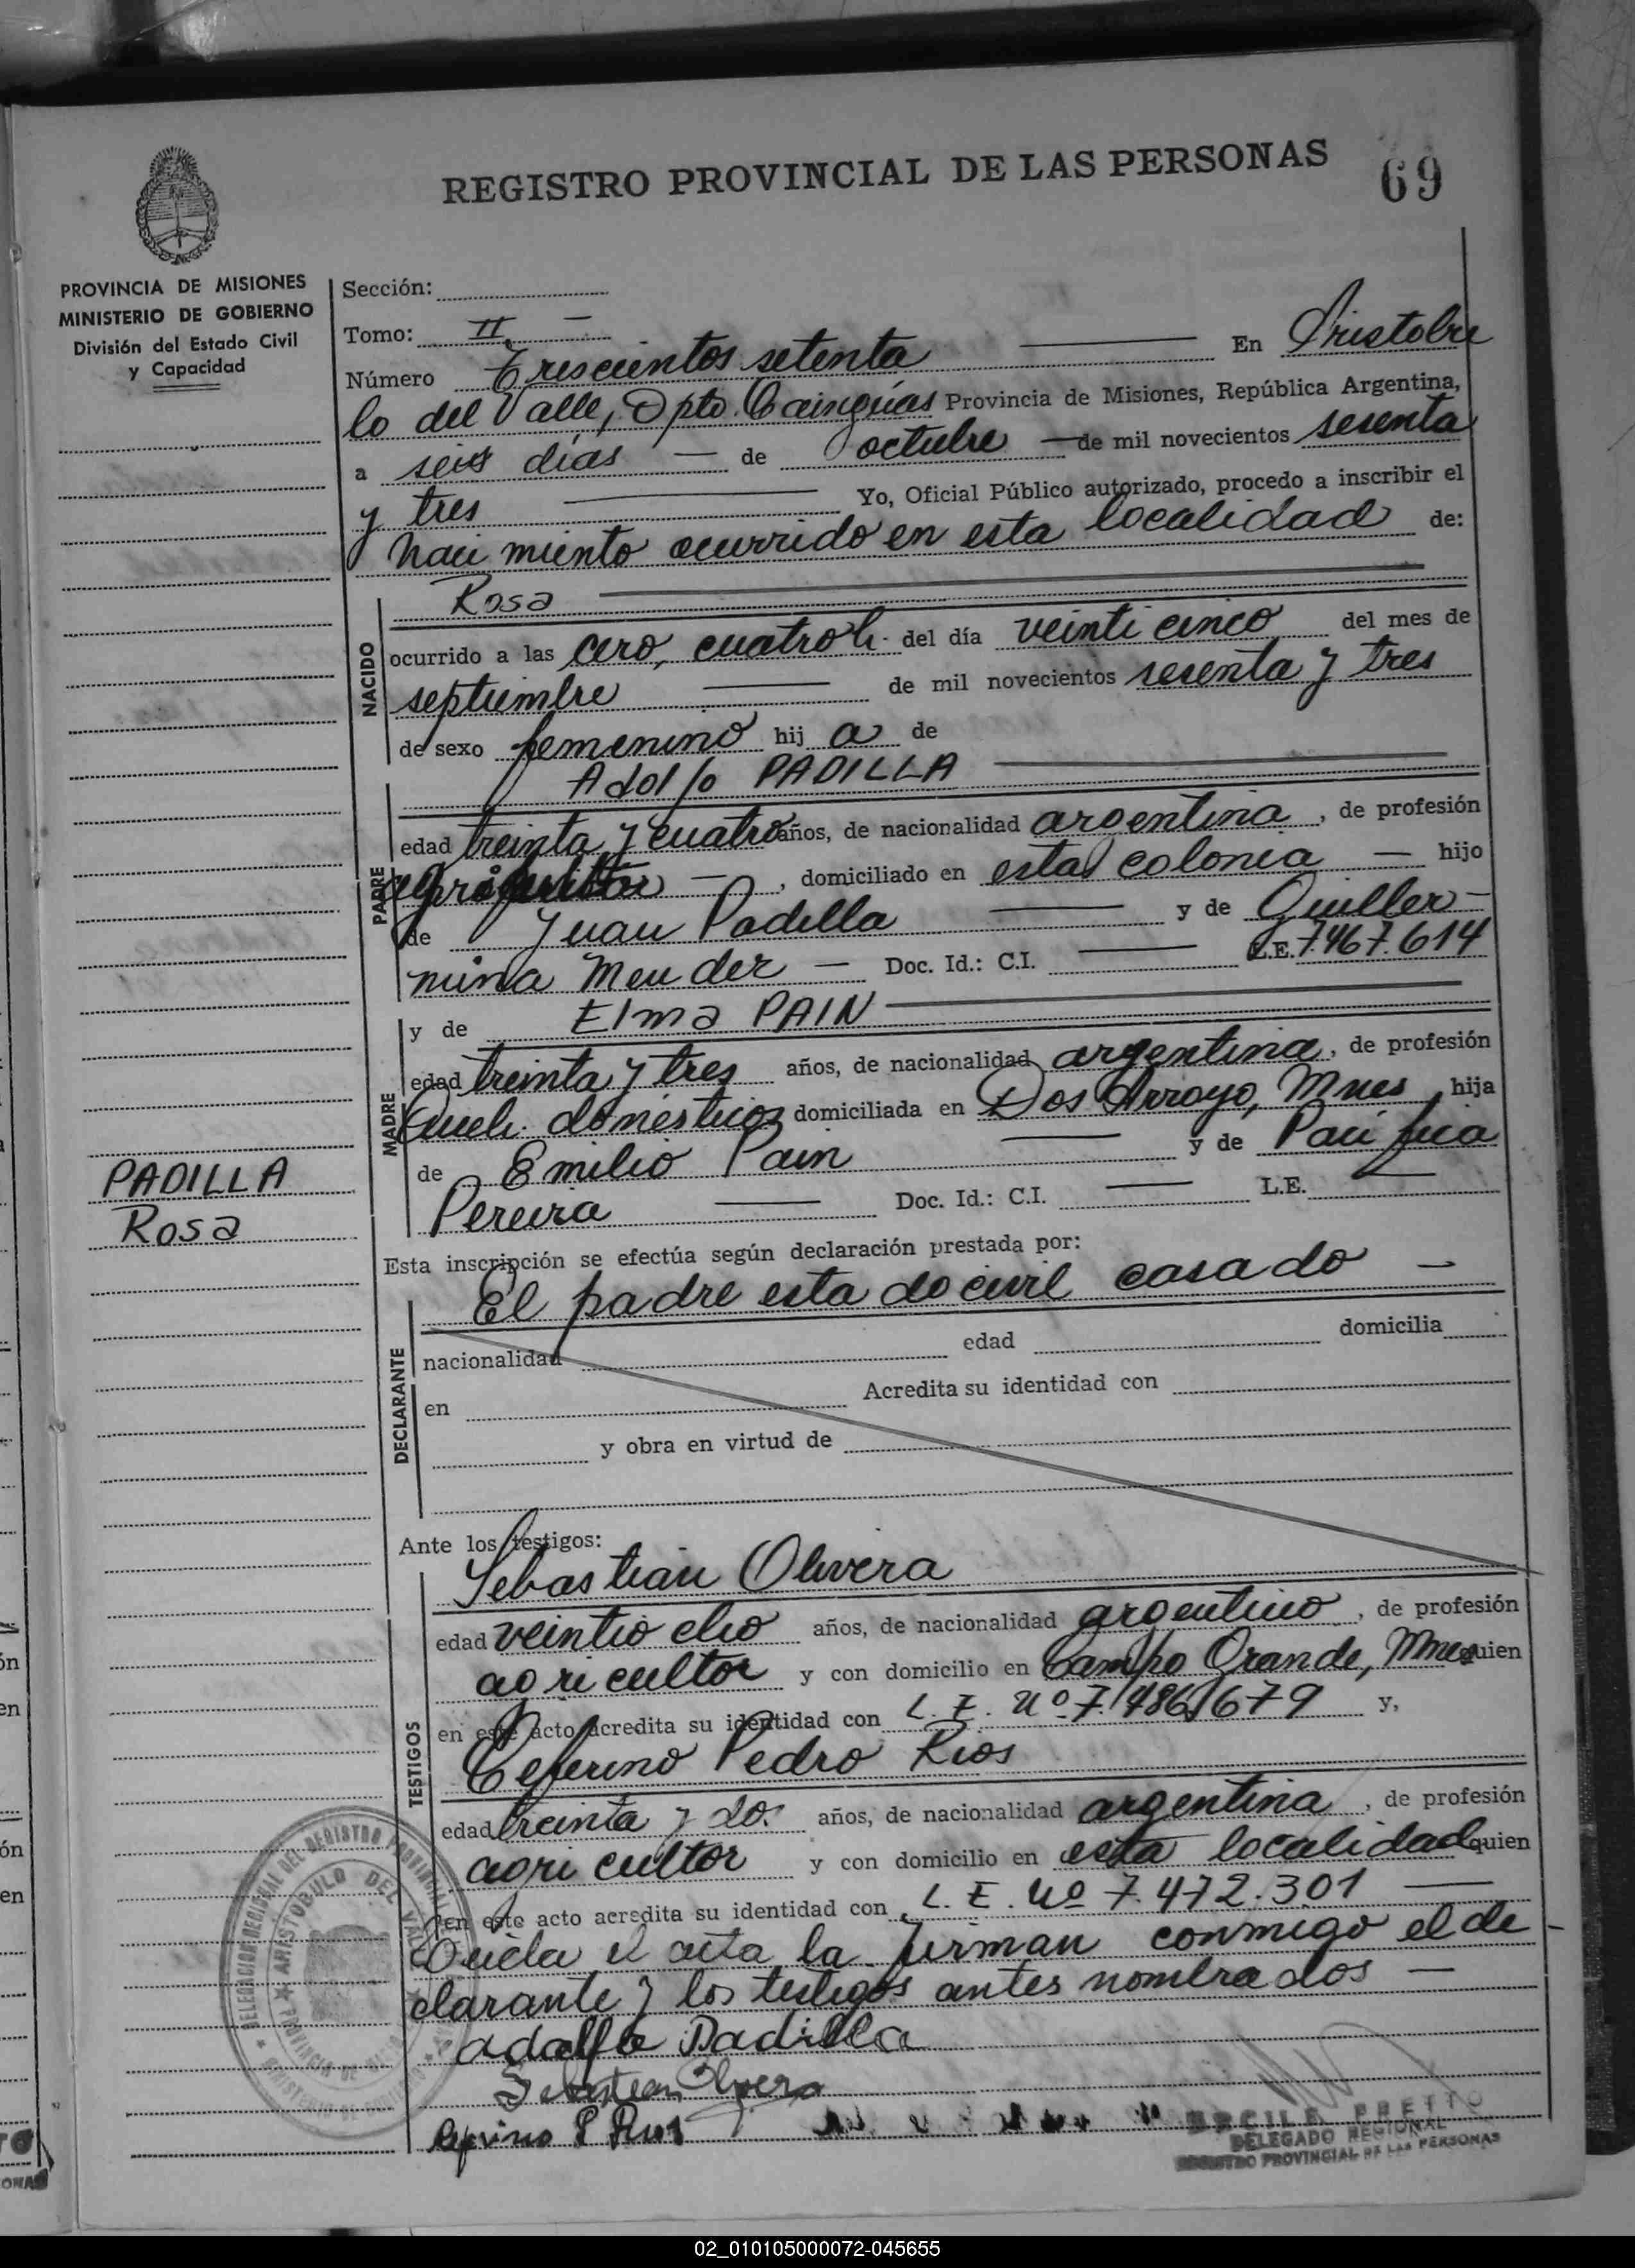 REGISTRO PROVINCIAL DE LAS PERSONAS
69
PROVINCIA DE MISIONES
MINISTERIO DE GOBIERNO
División del Estado Civil
y Capacidad
Sección:
Tomo: II. —
Número Trescientos setenta — En Aristobu
lo del Valle, Dpto. Cainguás Provincia de Misiones, República Argentina,
a seis días — de octubre — de mil novecientos sesenta
y tres — Yo, Oficial Público autorizado, procedo a inscribir el
naci miento ocurrido en esta localidad de:
NACIDO
Rosa
ocurrido a las cero, cuatro h. del día veinti cinco del mes de
septiembre — de mil novecientos sesenta y tres
de sexo femenino hij a de
PADRE
Adolfo PADILLA
edad treinta y cuatro años, de nacionalidad argentina, de profesión
agricultor —, domiciliado en esta colonia — hijo
de Juan Padilla — y de Guiller-
mina — Doc. Id.: C.I. — L.E. 7.467.614
MADRE
y de Elma PAIN
edad treinta y tres años, de nacionalidad argentina, de profesión
Queh. domésticos domiciliada en Dos Arroyo, Mnes, hija
de Emilio Pain — y de Paci fica
Pereira — Doc. Id.: C.I. — L.E. —
PADILLA
Rosa
Esta inscripción se efectúa según declaración prestada por:
DECLARANTE
El padre esta do civil casado —
nacionalidad edad domicilia
en Acredita su identidad con
y obra en virtud de
Ante los testigos:
TESTIGOS
Sebastian Olivera
edad veintio cho años, de nacionalidad argentino, de profesión
agricultor y con domicilio en Campo Grande, Mnes quien
en este acto acredita su identidad con L. E. Nº 7.486.679 y,
Ceferino Pedro Rios
edad treinta y dos años, de nacionalidad argentina, de profesión
agri cultor y con domicilio en esta localidad quien
en este acto acredita su identidad con L. E. Nº 7.472.301 —
Leída el acta la firman conmigo el de-
clarante y los testigos antes nombrados —
adolfo Padilla
Sebastian Olivera
P Rios
DELEGADO REGIONAL
REGISTRO PROVINCIAL DE LAS PERSONAS
DELEGACION REGIONAL DEL REGISTRO PROVINCIAL
ARISTOBULO DEL VALLE
PROVINCIA DE
MINISTERIO DE GOBIERNO
02_010105000072-045655